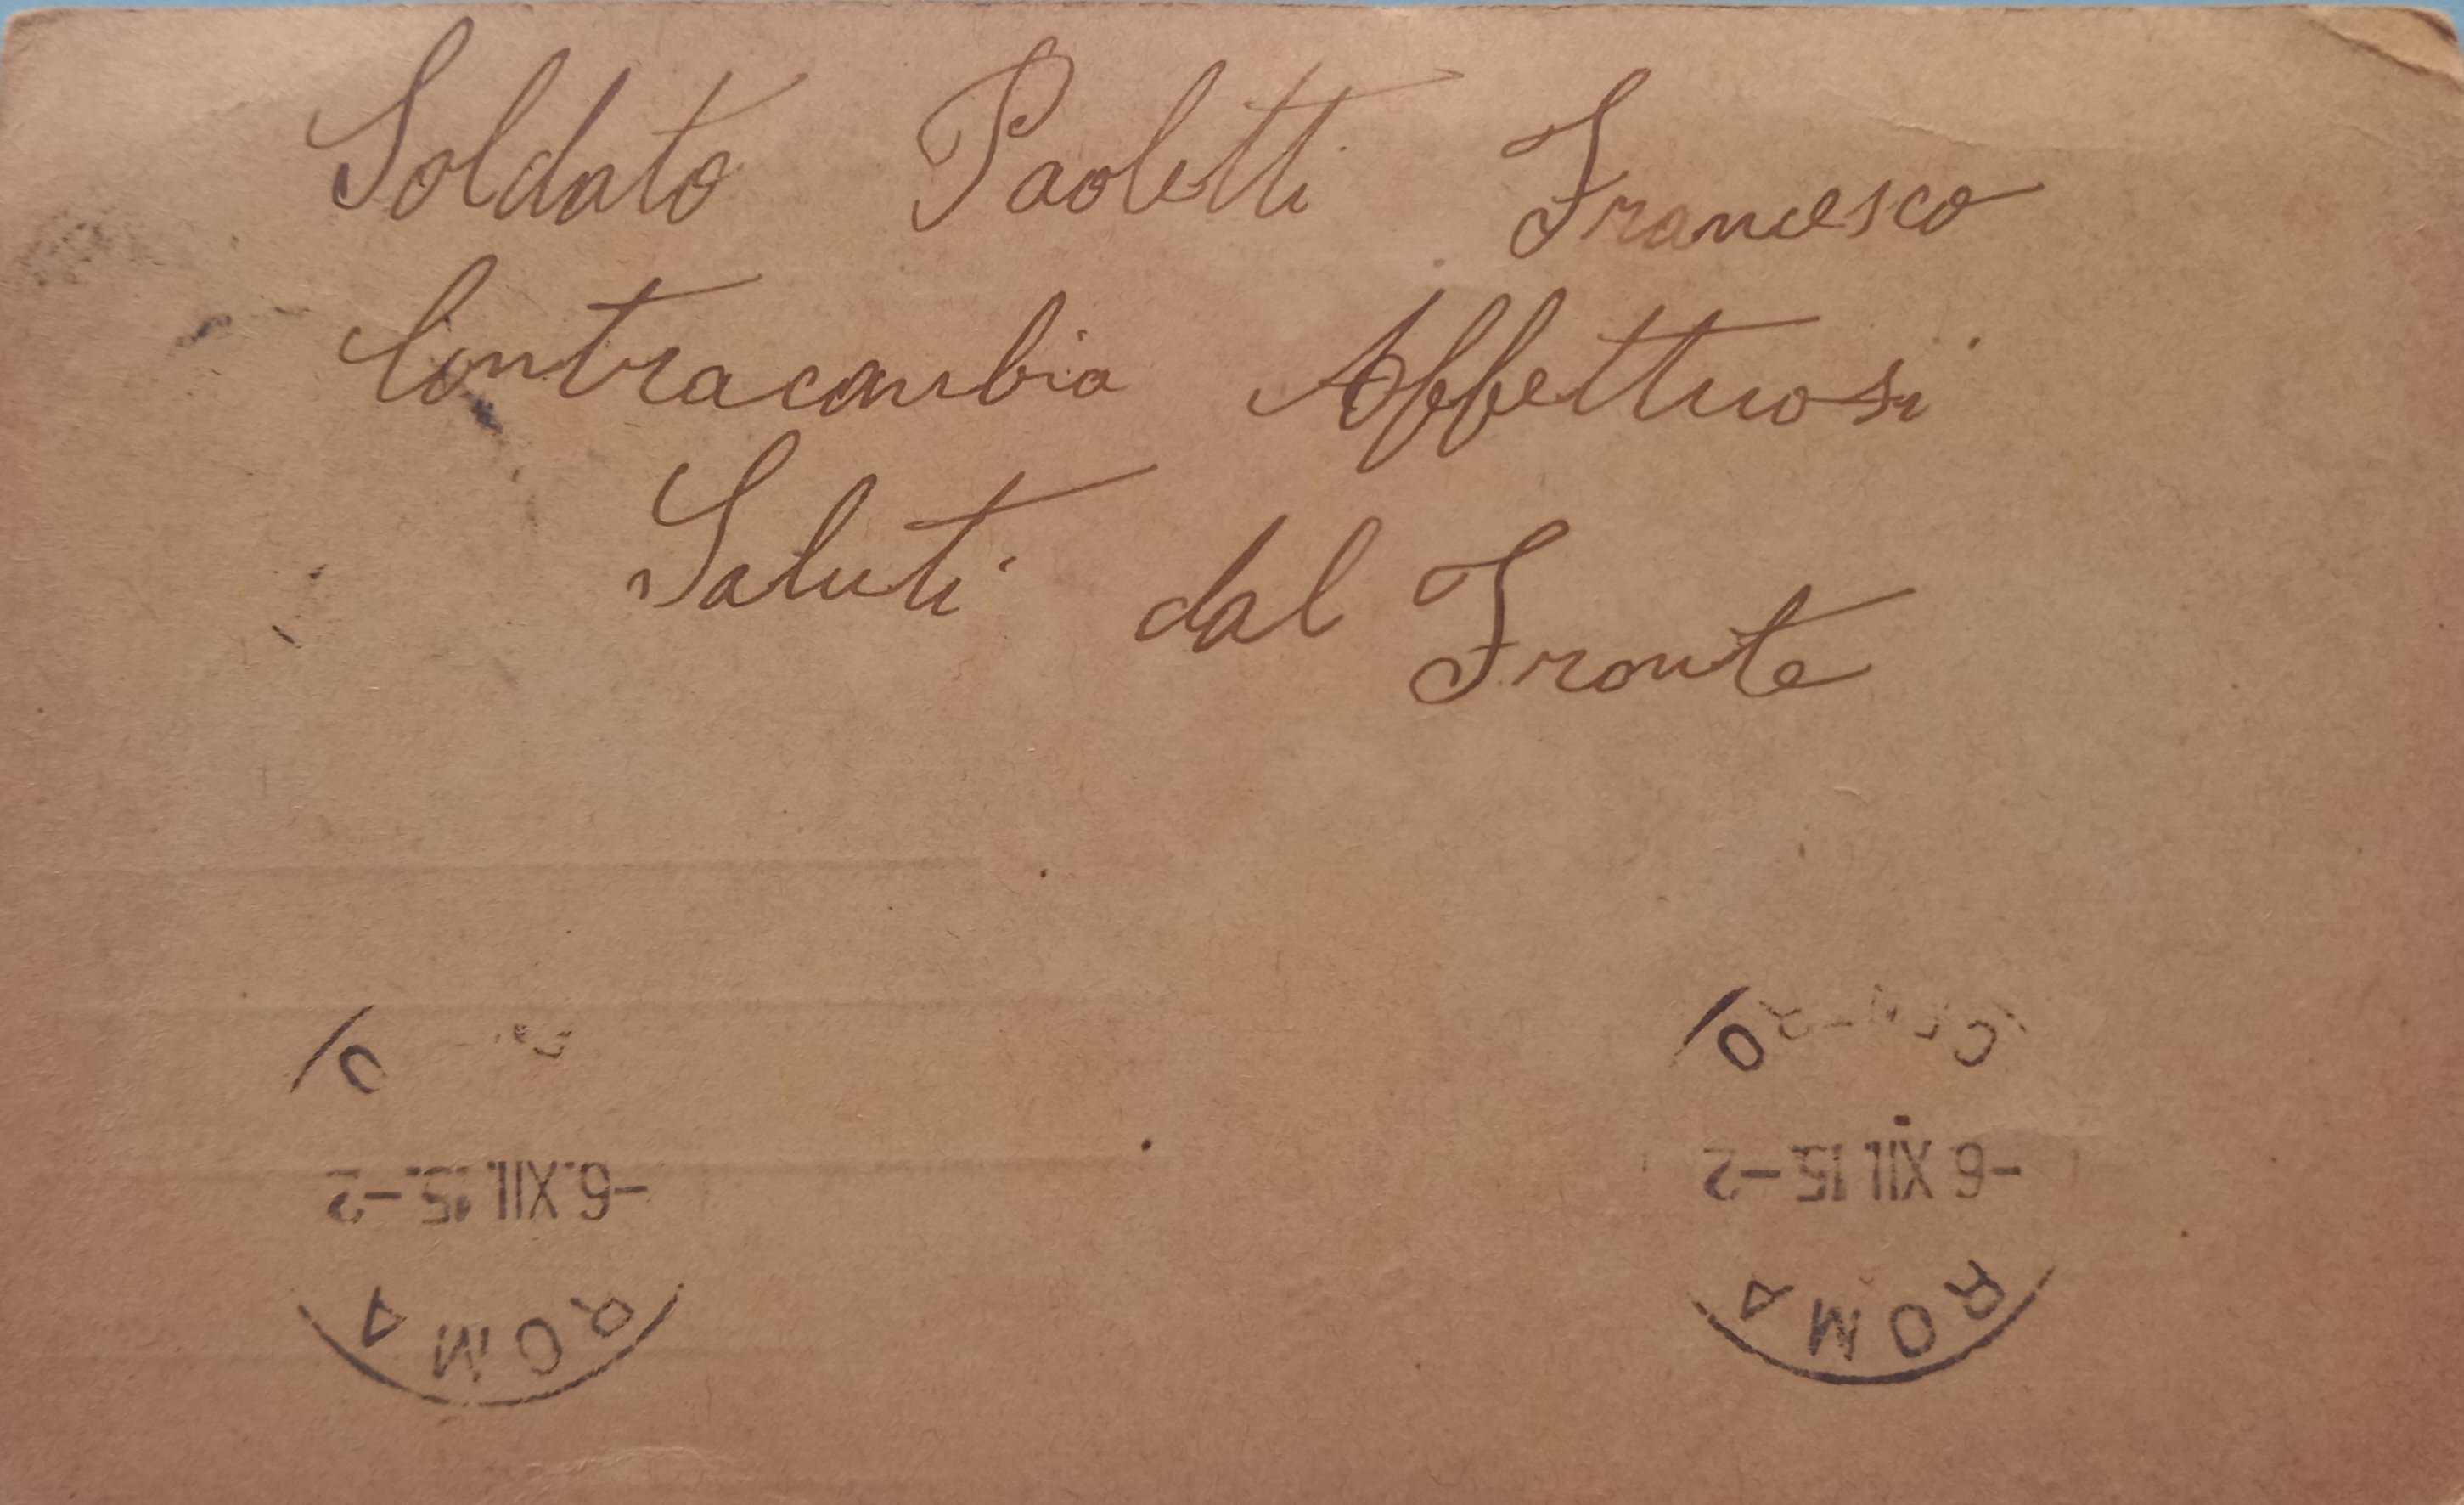 Soldato Paoletti Francesco
Contracambia Affettuosi
Saluti dal Fronte
ROMA
-6.XII.15.-2
ROMA
-6 XII.15-2